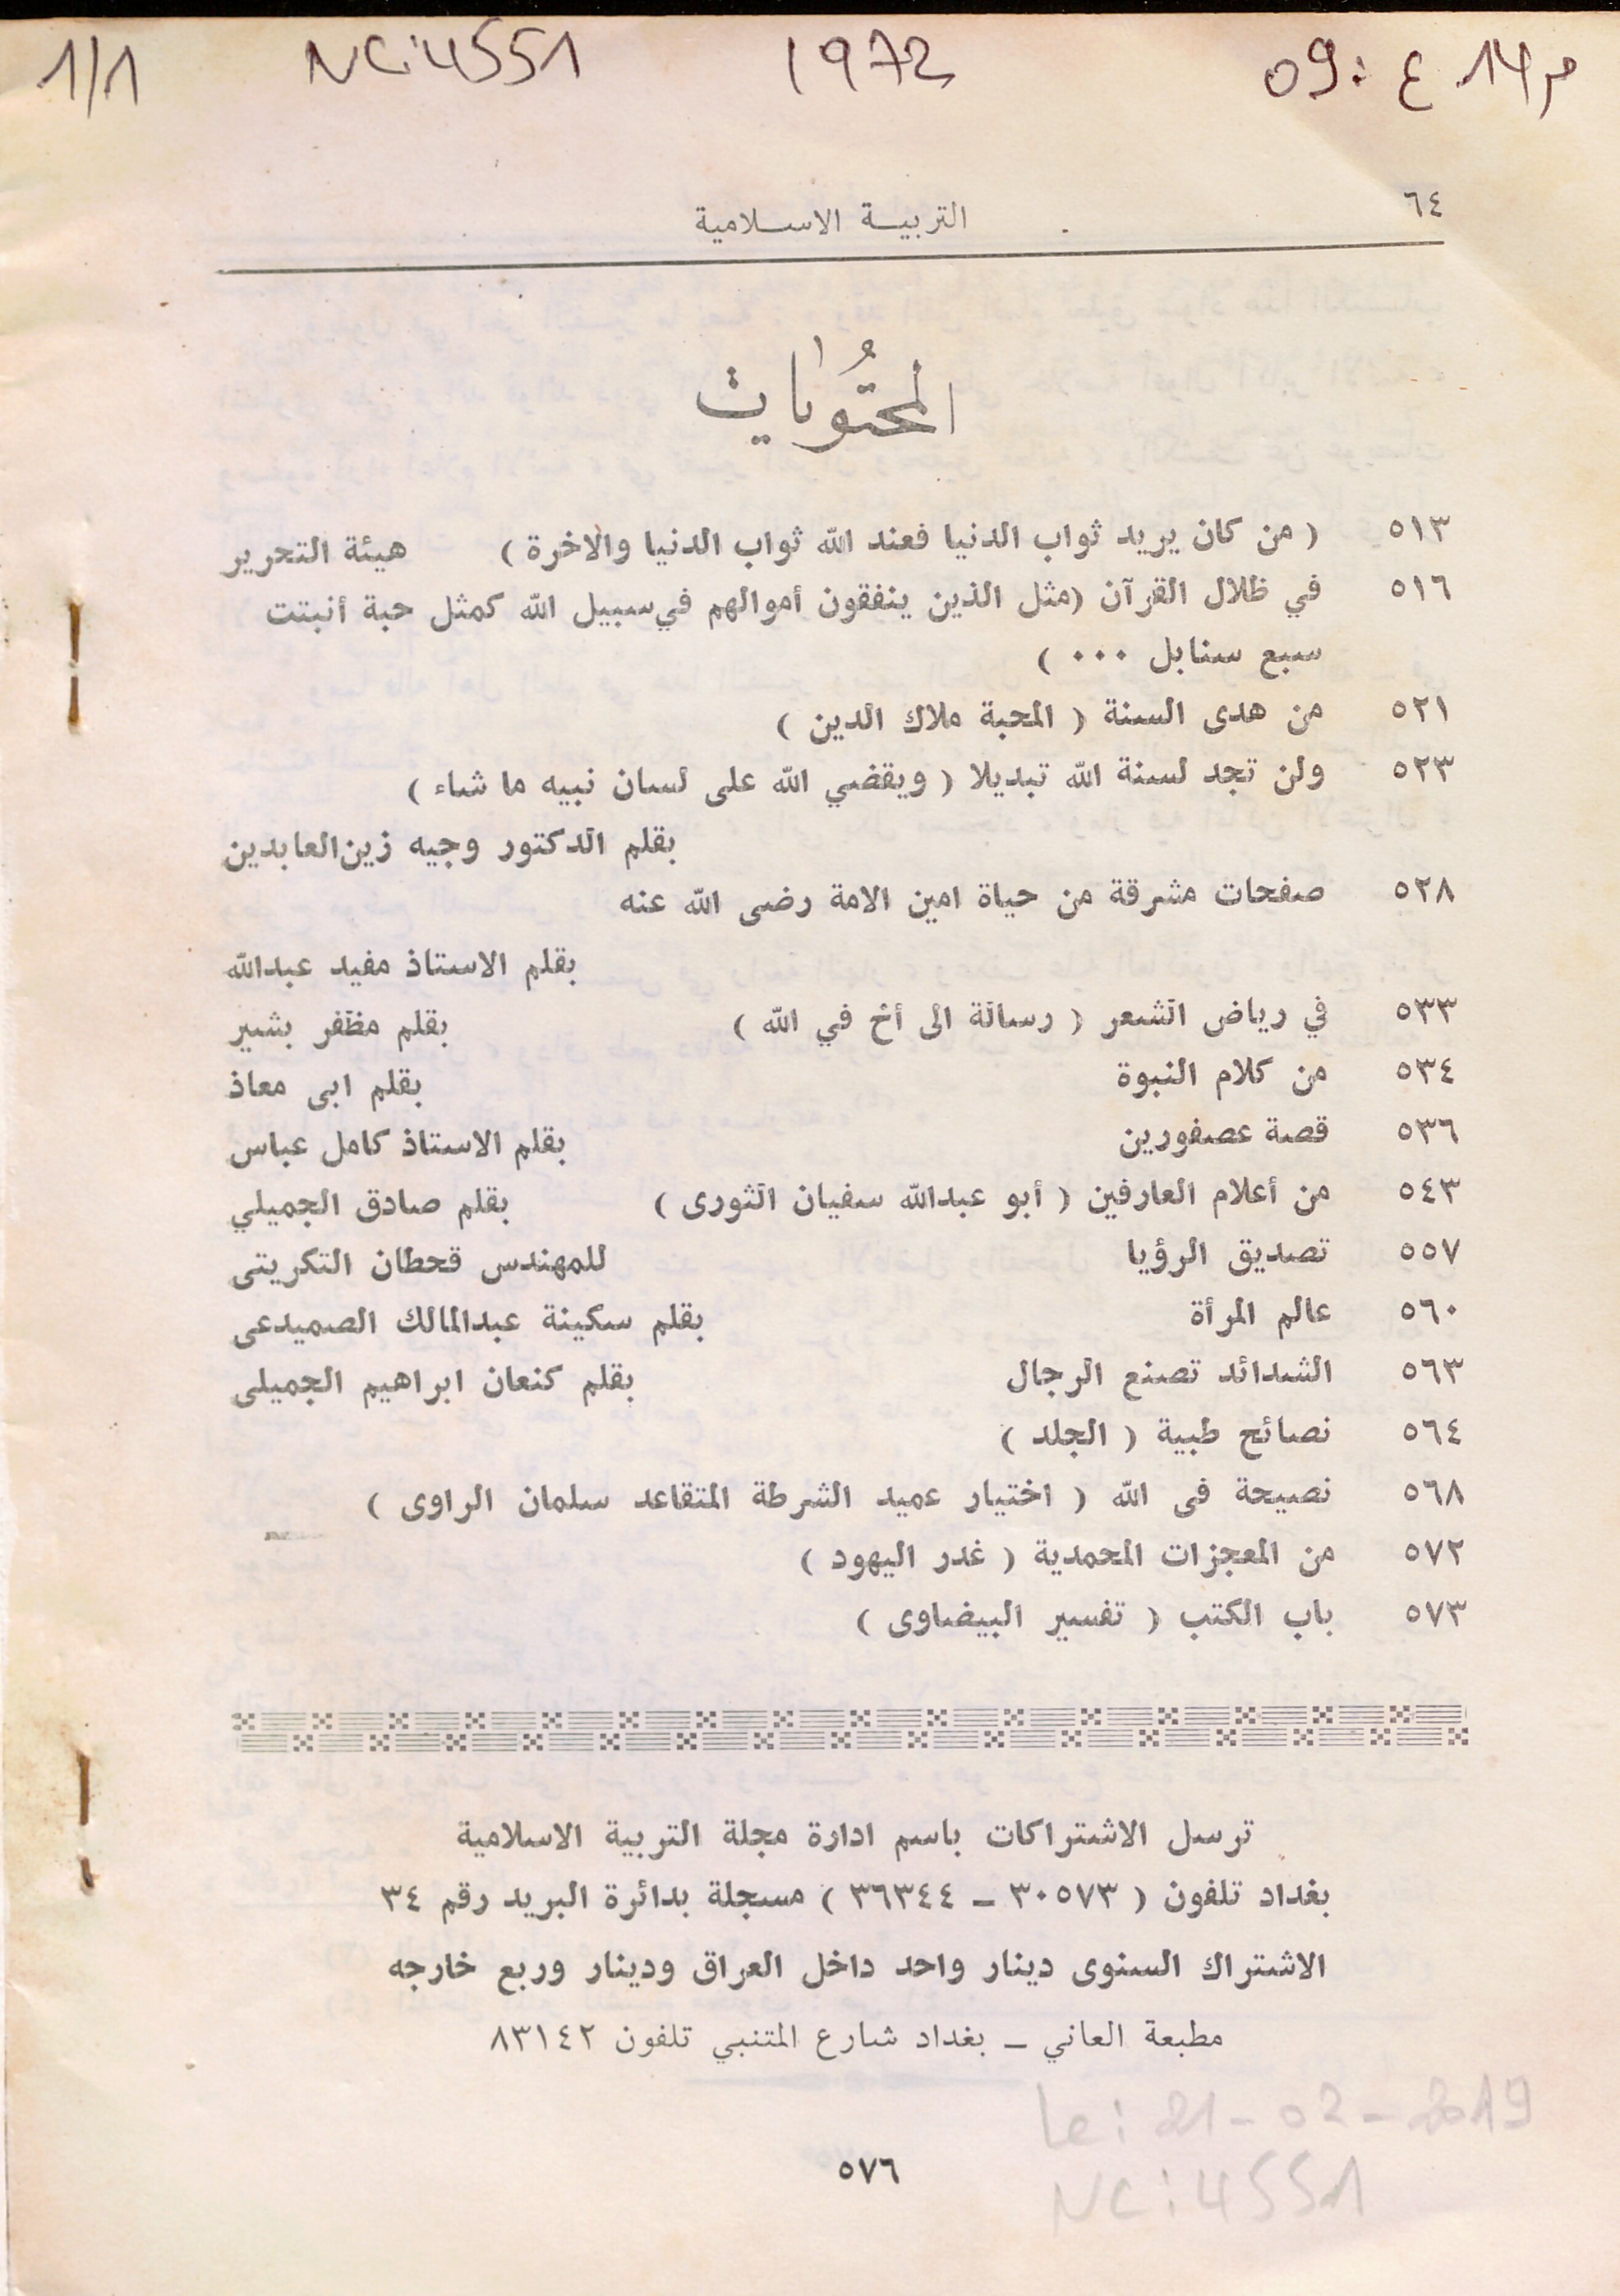 1/1 NC:4551 1972 09: ع 14 م
٦٤ التربيـــة الاســـلامية
المحتُويات
٥١٣ ( من كان يريد ثواب الدنيا فعند الله ثواب الدنيا والاخرة ) هيئة التحرير
٥١٦ في ظلال القرآن (مثل الذين ينفقون أموالهم في سبيل الله كمثل حبة أنبتت
سبع سنابل ٠٠٠ )
٥٢١ من هدى السنة ( المحبة ملاك الدين )
٥٢٣ ولن تجد لسنة الله تبديلا ( ويقضي الله على لسان نبيه ما شاء )
بقلم الدكتور وجيه زين العابدين
٥٢٨ صفحات مشرقة من حياة امين الامة رضى الله عنه
بقلم الاستاذ مفيد عبدالله
٥٣٣ في رياض الشعر ( رسالة الى أخ في الله ) بقلم مظفر بشير
٥٣٤ من كلام النبوة بقلم ابى معاذ
٥٣٦ قصة عصفورين بقلم الاستاذ كامل عباس
٥٤٣ من أعلام العارفين ( أبو عبدالله سفيان الثورى ) بقلم صادق الجميلي
٥٥٧ تصديق الرؤيا للمهندس قحطان التكريتى
٥٦٠ عالم المرأة بقلم سكينة عبدالمالك الصميدعى
٥٦٣ الشدائد تصنع الرجال بقلم كنعان ابراهيم الجميلى
٥٦٤ نصائح طبية ( الجلد )
٥٦٨ نصيحة فى الله ( اختيار عميد الشرطة المتقاعد سلمان الراوى )
٥٧٢ من المعجزات المحمدية ( غدر اليهود )
٥٧٣ باب الكتب ( تفسير البيضاوى )
ترسل الاشتراكات باسم ادارة مجلة التربية الاسلامية
بغداد تلفون ( ٣٠٥٧٣ ـ ٣٦٣٤٤ ) مسجلة بدائرة البريد رقم ٣٤
الاشتراك السنوى دينار واحد داخل العراق ودينار وربع خارجه
مطبعة العاني ـ بغداد شارع المتنبي تلفون ٨٣١٤٢
le: 21-02-2019
٥٧٦
NC:4551